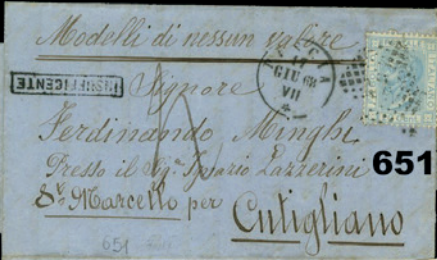 Modelli di nessun valore
LUCCA
17
GIU 68
VII
INSUFFICIENTE
Signore
Ferdinando Minghi
Presso il Sigr Ignazio Lazzerini
Sn Marcello per
Cutigliano
651
651